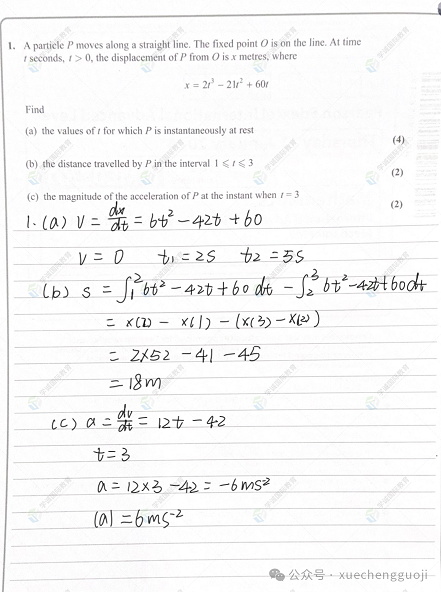 1. A particle P moves along a straight line. The fixed point O is on the line. At time
t seconds, t > 0, the displacement of P from O is x metres, where
x = 2t³ − 21t² + 60t
Find
(a) the values of t for which P is instantaneously at rest
(4)
(b) the distance travelled by P in the interval 1 ⩽ t ⩽ 3
(2)
(c) the magnitude of the acceleration of P at the instant when t = 3
(2)
1. (a) V = dx/dt = 6t² − 42t + 60
V = 0 t₁ = 2s t₂ = 5s
(b) s = ∫₁² 6t² − 42t + 60 dt − ∫₂³ 6t² − 42t + 60 dt
= x(2) − x(1) − (x(3) − x(2))
= 2×52 − 41 − 45
= 18m
(c) a = dv/dt = 12t − 42
t = 3
a = 12×3 − 42 = −6ms²
|a| = 6ms⁻²
公众号 · xuechengguoji